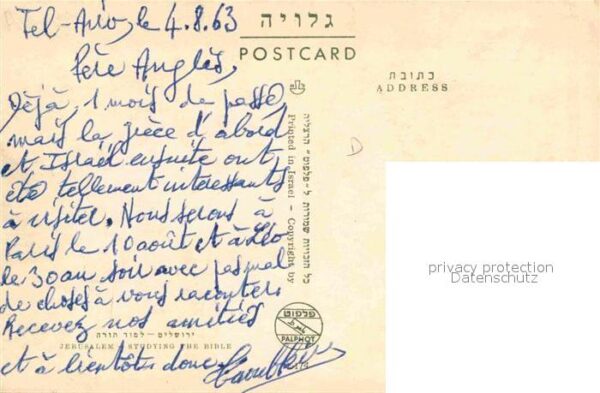 Tel-Aviv, le 4.8.63
Père Anglès,
Déjà, 1 mois de passé
mais la Grèce d'abord
et Israël ensuite ont
été tellement interessants
à visiter. Nous serons à
Paris le 10 août et à
le 30 au soir avec pas mal
de choses à vous raconter.
Recevez nos amitiés
et à bientôt donc.
גלויה
POSTCARD
כתובת
ADDRESS
D
כל הזכויות שמורות ל-פלפוט" הרצליה
Printed in Israel - Copyright by
ירושלים - למוד תורה
JERUSALEM - STUDYING THE BIBLE
פלפוט
PALPHOT
privacy protection
Datenschutz